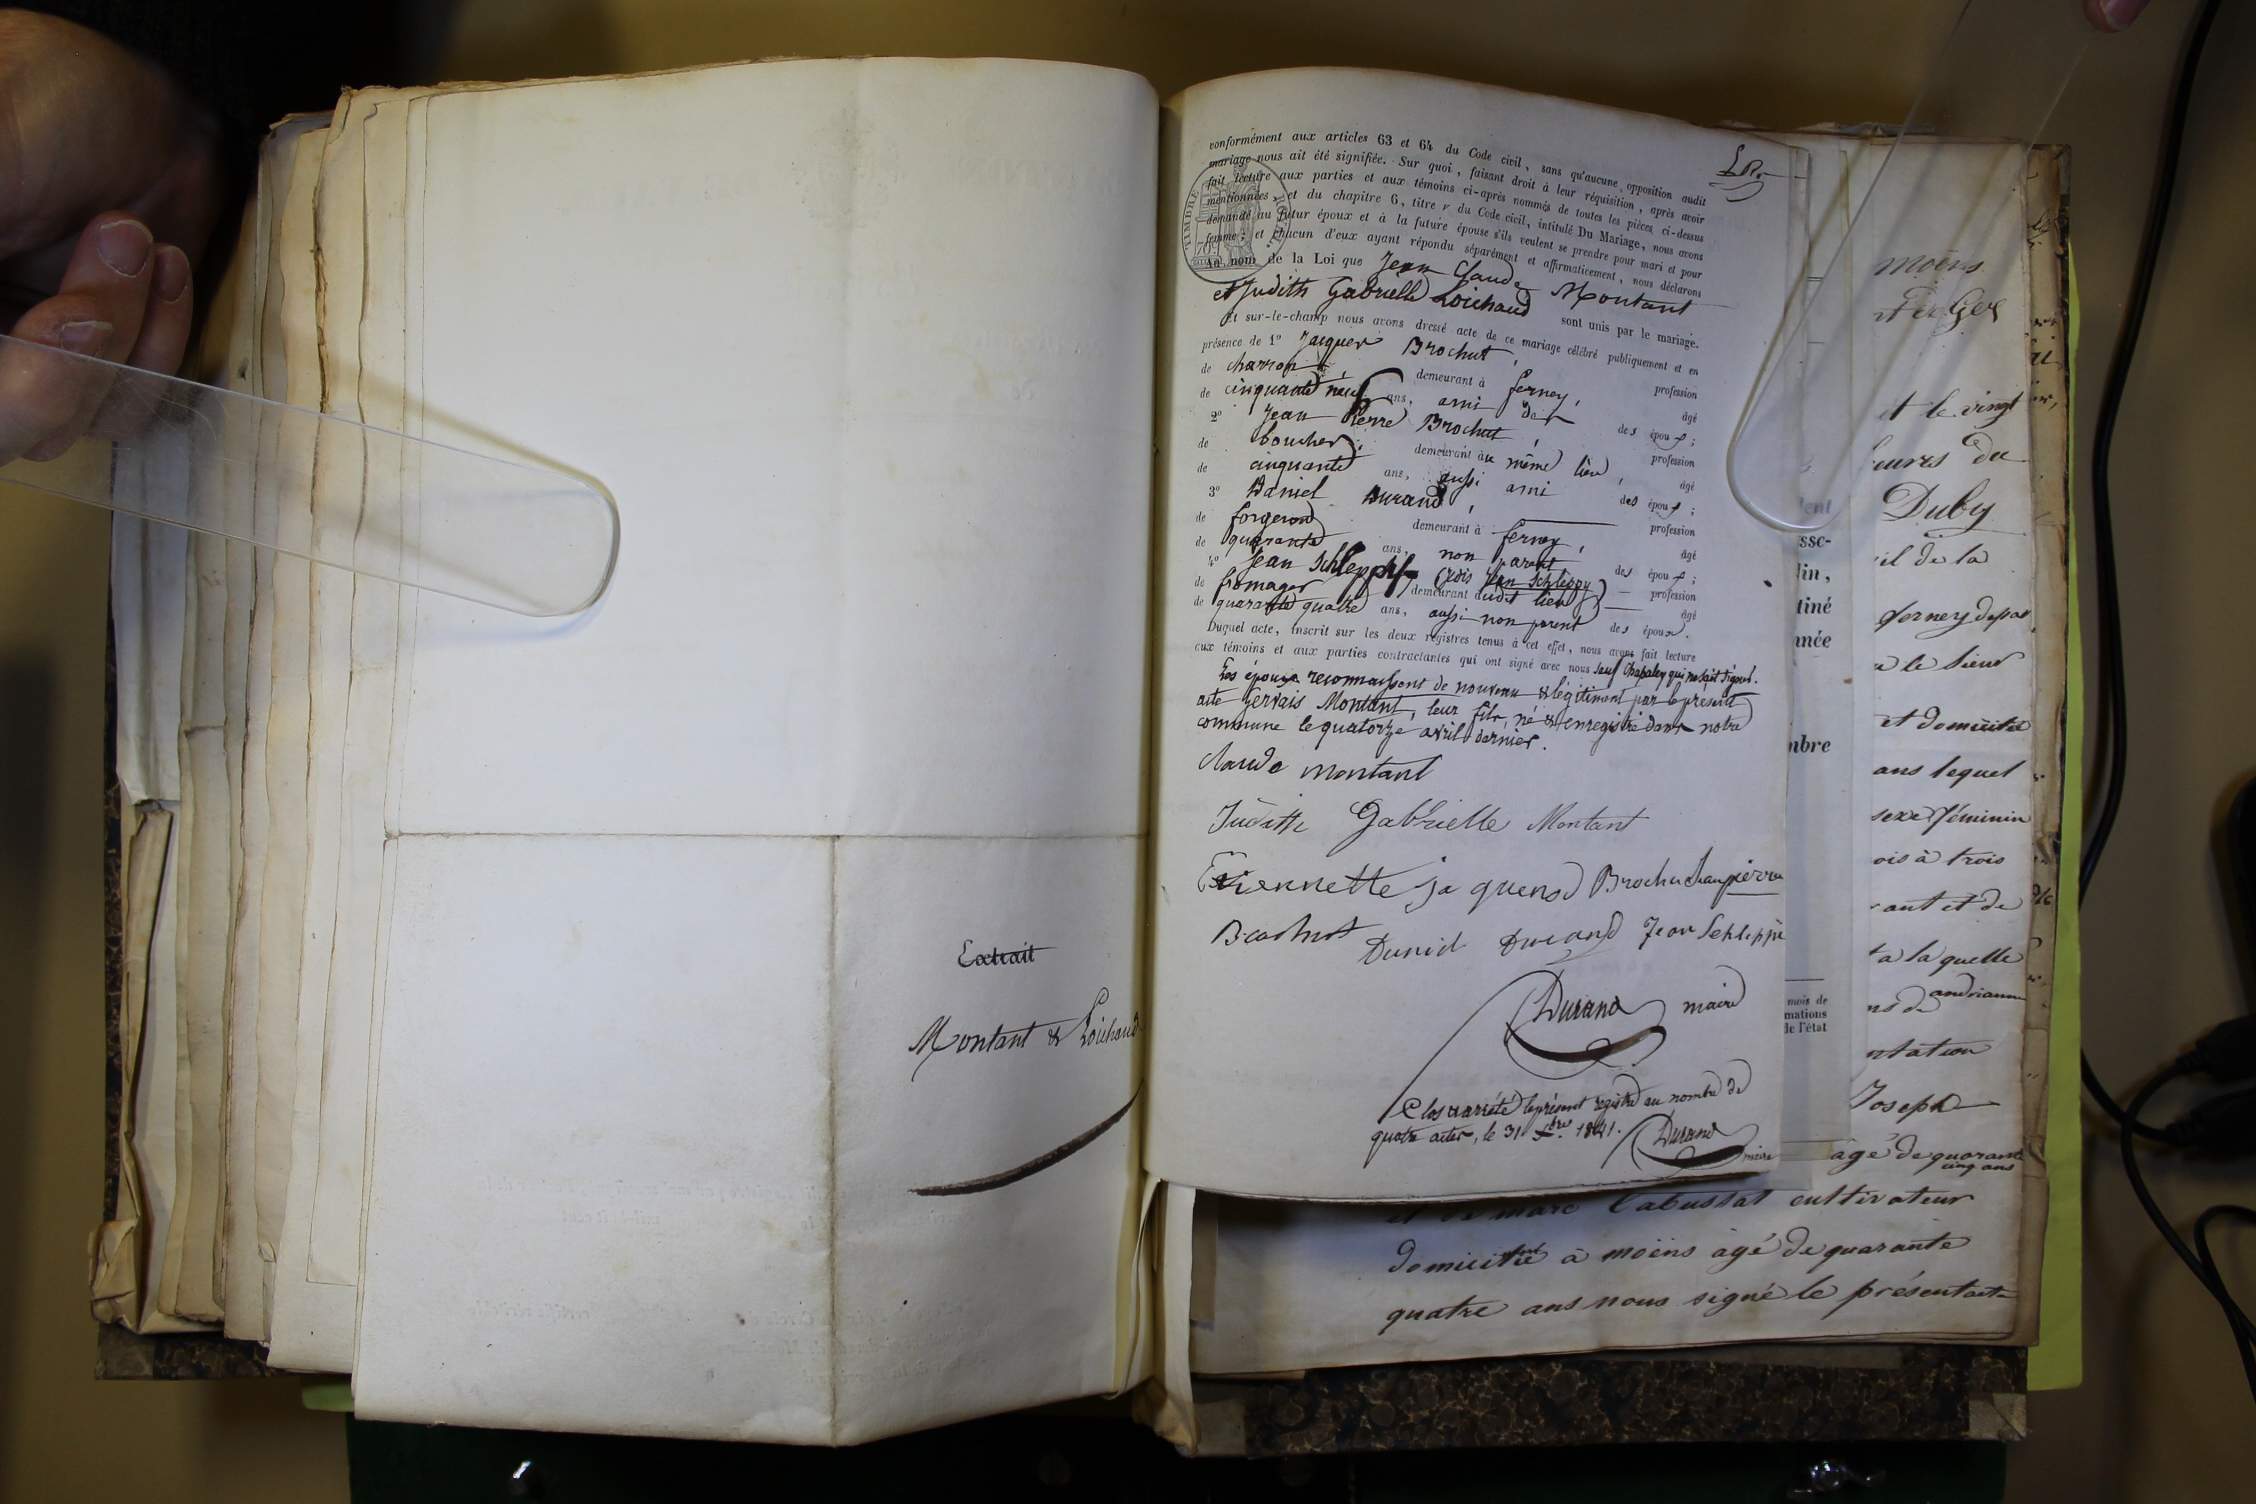 Extrait
Montant & Loichaud
conformément aux articles 63 et 64 du Code civil, sans qu'aucune opposition audit
mariage nous ait été signifiée. Sur quoi, faisant droit à leur réquisition, après avoir
fait lecture aux parties et aux témoins ci-après nommés de toutes les pièces ci-dessus
mentionnées, et du chapitre 6, titre v du Code civil, intitulé Du Mariage, nous avons
demandé au futur époux et à la future épouse s'ils veulent se prendre pour mari et pour
femme; et chacun d'eux ayant répondu séparément et affirmativement, nous déclarons
Au nom de la Loi que Jean Claude Montant
et Judith Gabrielle Loichaud sont unis par le mariage.
Et sur-le-champ nous avons dressé acte de ce mariage célébré publiquement et en
présence de 1° Jacques Brochut,
de charron, demeurant à ferney, profession
de cinquante neuf ans, ami des époux; âgé
2° Jean Pierre Brochut,
de boucher, demeurant au même lieu, profession
de cinquante ans, aussi ami des époux; âgé
3° Daniel Durand,
de forgeron demeurant à ferney, profession
de quarante ans, non parent des époux; âgé
4° Jean Schleppy (Jean Schleppy)
de fromager, demeurant audit lieu profession
de quarante quatre ans, aussi non parent des époux. âgé
Duquel acte, inscrit sur les deux registres tenus à cet effet, nous avons fait lecture
aux témoins et aux parties contractantes qui ont signé avec nous sauf Chapaley qui ne sait signer.
Les époux reconnaissent de nouveau & légitiment par le présent
acte Gervais Montant, leur fils, né & enregistré dans notre
commune le quatorze avril dernier.
Claude montant
Judith Gabrielle Montant
Etiennette ja quenod Brochu Jean pierre
Brochut Daniel Durand Jean Schleppi
Durand maire
Clos & arrêté le présent registre au nombre de
quatre actes, le 31 Xbre 1841. Durand maire
TIMBRE ROYAL
moins
et le vingt
heures du
Duby
il de la
ferney
le sieur
et domicilié
ans lequel
sexe féminin
ois à trois
ant et de
a la quelle
andrianne
ntation
Joseph
âgé de quarante
cinq ans
et de marc Cabussat cultivateur
domicilié à moëns âgé de quarante
quatre ans nous signé le présent acte
ssc-
lin,
tiné
nnée
mbre
mois de
mations
de l'état